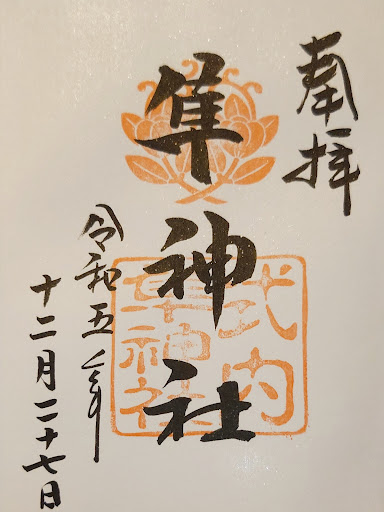 奉拝
隼神社
式内
隼神社
令和五年
十二月二十七日